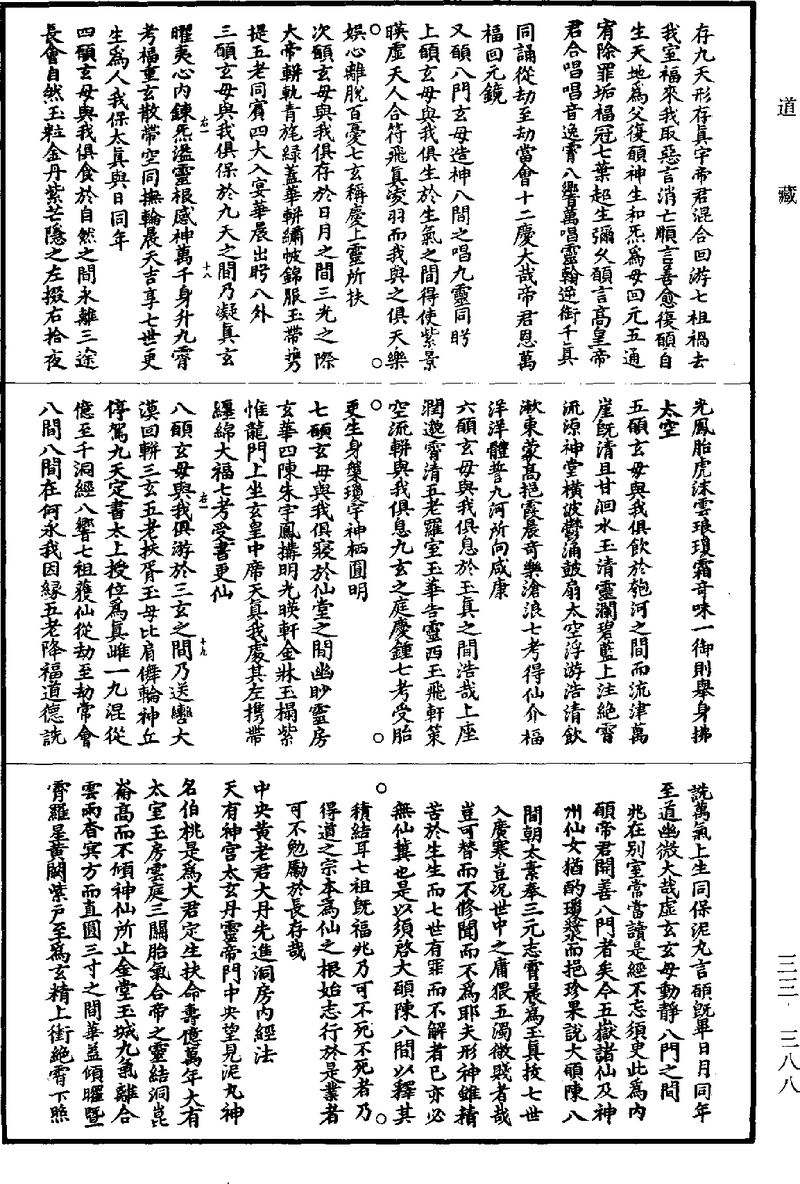 道藏
存九天形存真宇帝君混合回游七祖禍去
我室福來我取惡言消亡願言善愈復願自
生天地爲父復願神生和炁爲母回元五通
宥除罪垢福冠七葉超生彌久願言高皇帝
君合唱唱音逸霄八響萬唱靈翰逆銜千真
同誦從劫至劫當會十二慶大哉帝君恩萬
福回元鏡
又願八門玄母造神八間之唱九靈同眄
上願玄母與我俱生於生氣之間得使紫景
暎虛天人合符飛真凌羽而我與之俱天樂
娛心離脫百憂七玄稱慶上靈所扶
次願玄母與我俱存於日月之間三光之際
大帝軿軌青旄綠蓋華軿繡帔錦服玉帶攜
提五老同賓四大入宴華晨出眄八外
三願玄母與我俱保於九天之間乃凝真玄
右一
十八
曜夷心內鍊炁溢靈根感神萬千身升九霄
考福重玄散帶空同撫輪晨天吉享七世更
生爲人我保太真與日同年
四願玄母與我俱食於自然之間永離三途
長會自然玉粒金丹紫芒隱之左掇右拾夜
光鳳胎虎沫雲琅瓊霜奇味一御則舉身拂
太空
五願玄母與我俱飲於匏河之間而流津萬
崖旣清且甘洄水玉清靈瀾碧藍上注絕霄
流源神堂橫波鬱涌皷扇太空浮游浩清飲
漱東蒙高挹霞晨奇樂滄浪七考得仙介福
洋洋體誓九河所向咸康
六願玄母與我俱息於玉真之間浩哉上座
潤邈霄清五老羅室玉華告靈西王飛軒策
空流軿與我俱息九玄之庭慶鍾七考受胎
更生身槃瓊宇神栖圓明
七願玄母與我俱寢於仙堂之間幽眇靈房
玄華四陳朱宇鳳搆明光暎軒金牀玉榻紫
帷龍門上坐玄皇中席天真我處其左攜帶
纏綿大福七考受書更仙
右一
十九
八願玄母與我俱游於三玄之間乃送轡大
漠回軿三玄五老扶胥玉母比肩儛輪神丘
停駕九天定書太上授位爲真雌一九混從
億至千洞經八響七祖獲仙從劫至劫常會
八間八間在何永我因緣五老降福道德詵
詵萬氣上生同保泥丸言願旣畢日月同年
至道幽微大哉虛玄玄母動靜八門之間
兆在別室常當讀是經不忘須臾此爲內
願帝君開善八門者矣今五嶽諸仙及神
州仙女猶酌瓊漿而挹珍果說大願陳八
間朝太素奉三元志霄晨爲玉真拔七世
入廣寒豈況世中之庸猥五濁微賤者哉
豈可替而不修聞而不爲耶夫形神雖精
苦於生生而七世有罪而不解者已亦必
無仙冀也是以須啓大願陳八間以釋其
積結耳七祖旣福兆乃可不死不死者乃
得道之宗本爲仙之根始志行於是業者
可不勉勵於長存哉
中央黃老君大丹先進洞房內經法
天有神宮太玄丹靈帝門中央望見泥丸神
名伯桃是爲大君定生扶命壽億萬年大有
太室玉房雲庭三關胎氣合帝之靈結洞崑
崙高而不傾神仙所止金堂玉城九氣離合
雲雨杳冥方而直圓三寸之間華蓋傾曜曁
霄羅星黃闕紫戶至爲玄精上銜絕霄下照
三三·三八八